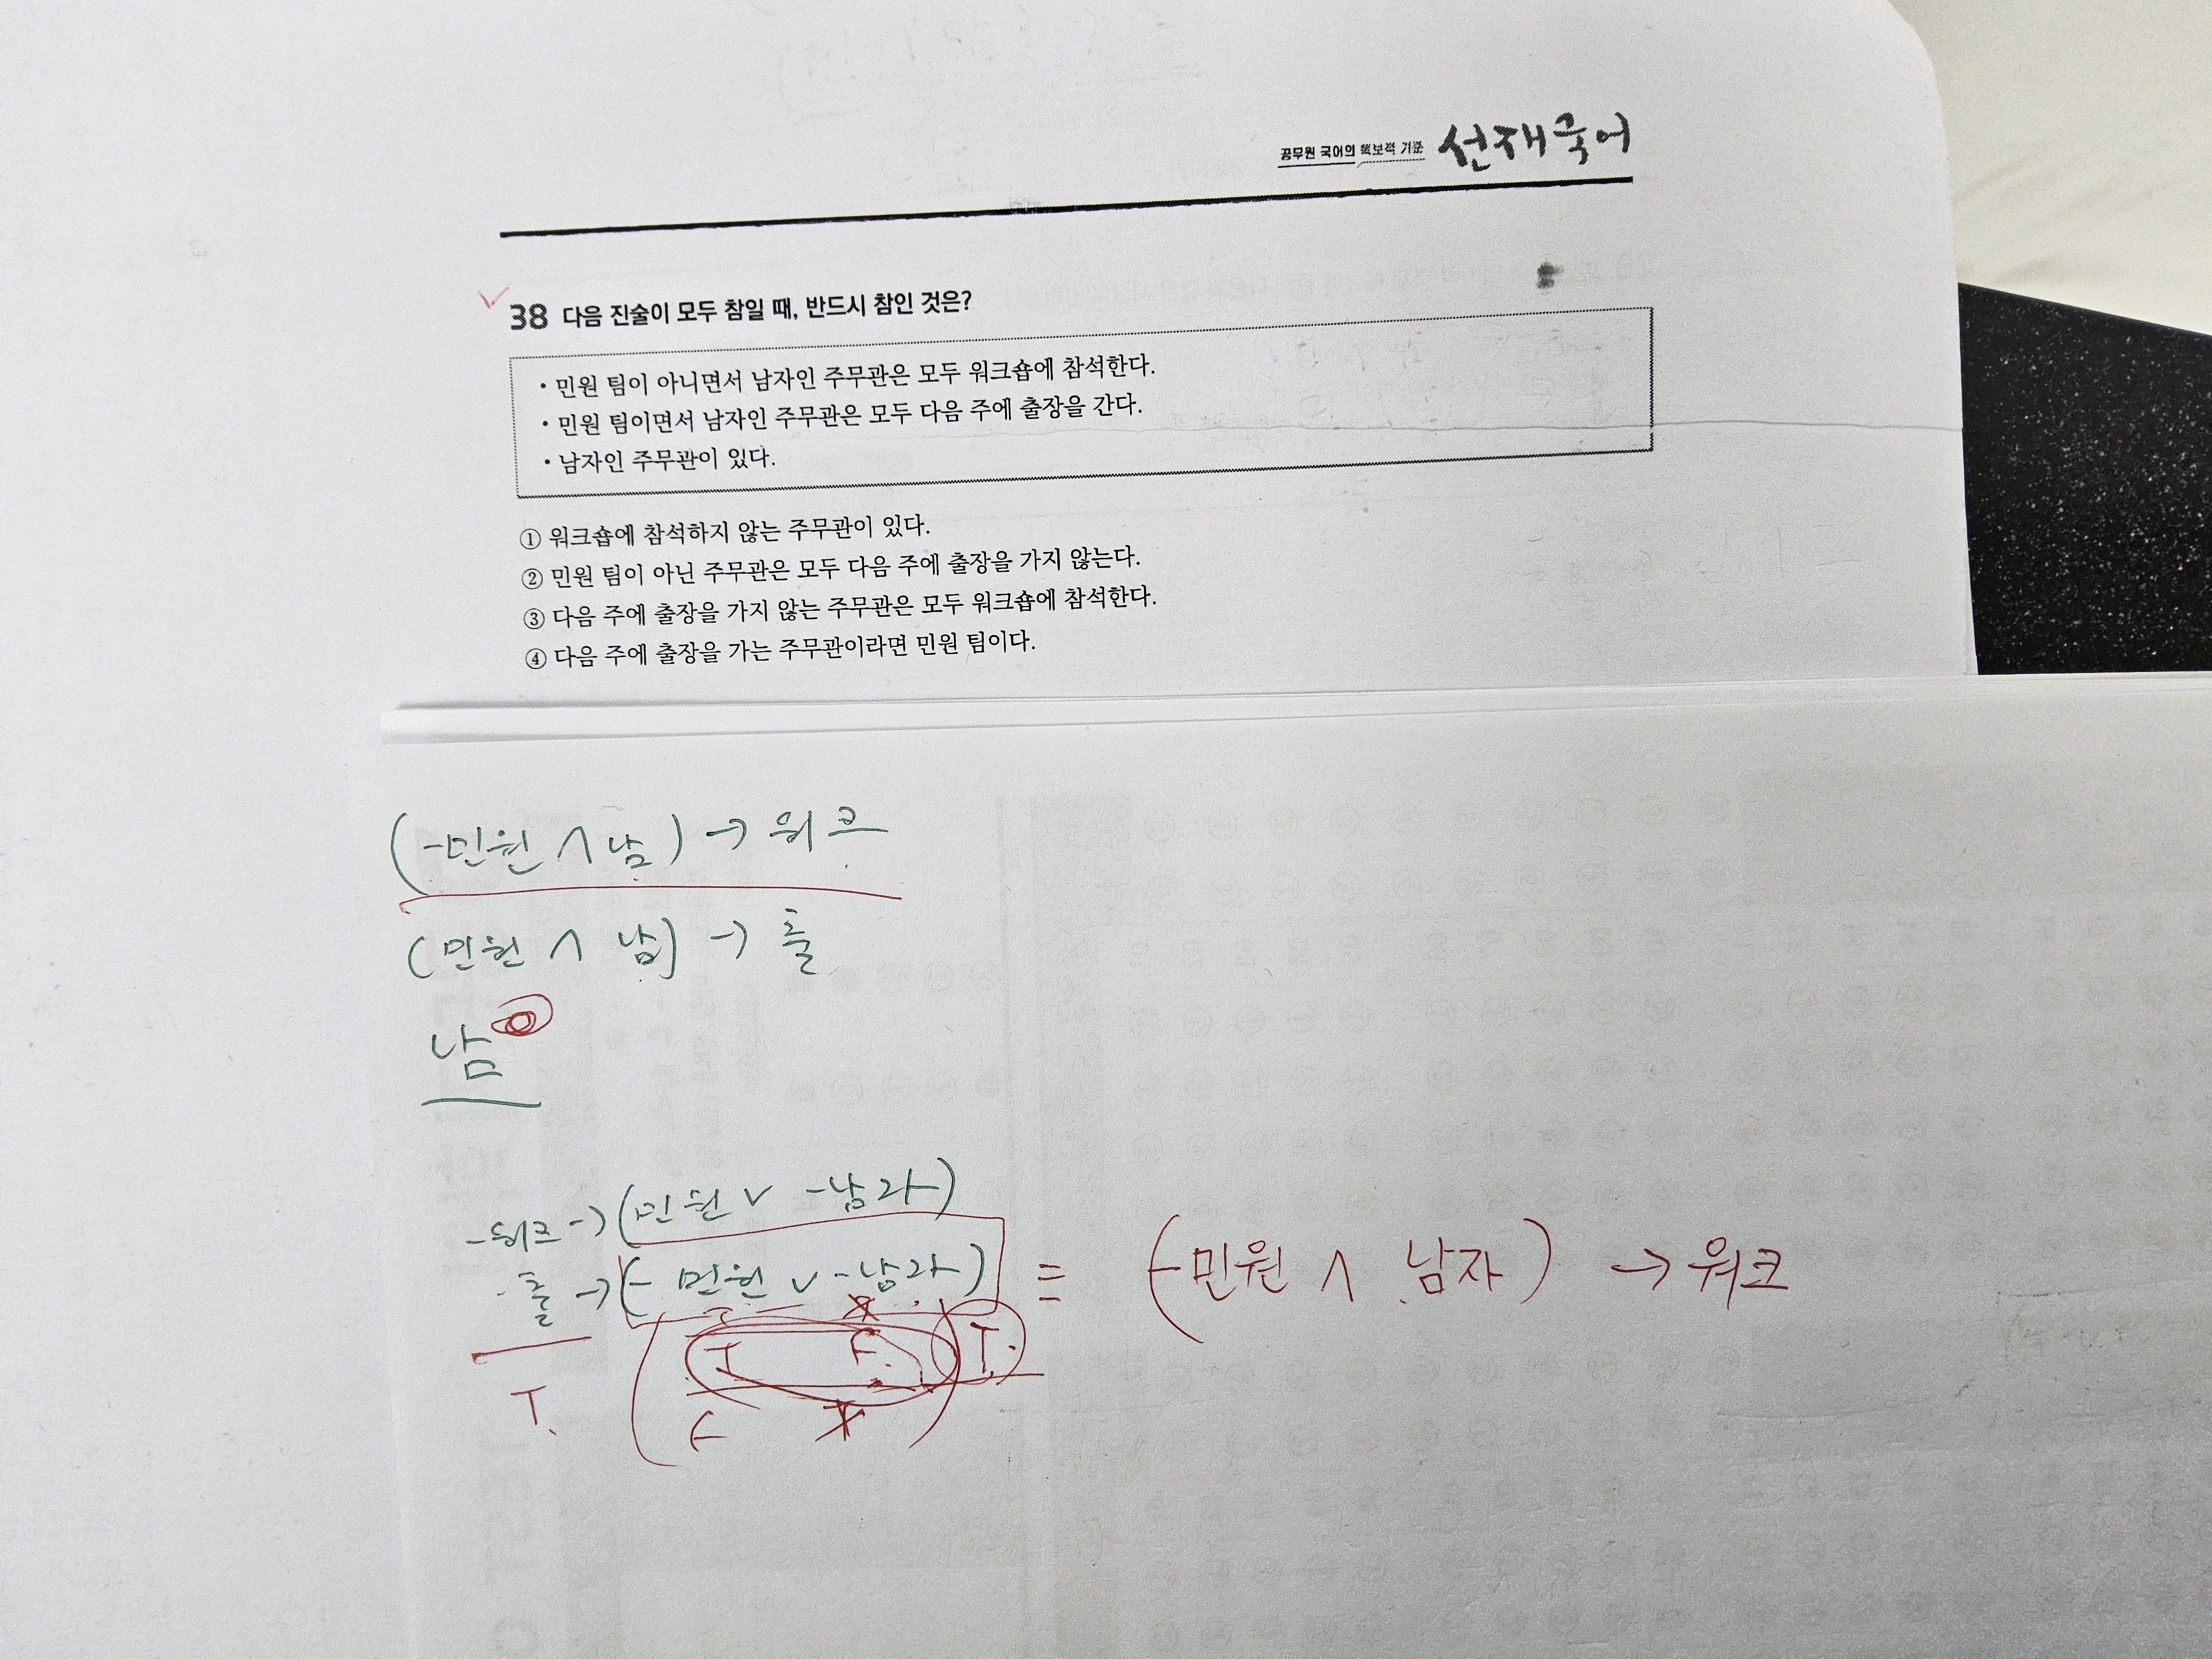 공무원 국어의 독보적 기준 선재국어
38 다음 진술이 모두 참일 때, 반드시 참인 것은?
• 민원 팀이 아니면서 남자인 주무관은 모두 워크숍에 참석한다.
• 민원 팀이면서 남자인 주무관은 모두 다음 주에 출장을 간다.
• 남자인 주무관이 있다.
① 워크숍에 참석하지 않는 주무관이 있다.
② 민원 팀이 아닌 주무관은 모두 다음 주에 출장을 가지 않는다.
③ 다음 주에 출장을 가지 않는 주무관은 모두 워크숍에 참석한다.
④ 다음 주에 출장을 가는 주무관이라면 민원 팀이다.
(-민원 ∧ 남) → 워크
(민원 ∧ 남) → 출
남
-워크 → (민원 ∨ -남자)
-출 → (- 민원 ∨ -남자) = (-민원 ∧ 남자) → 워크
T F T.
T. F